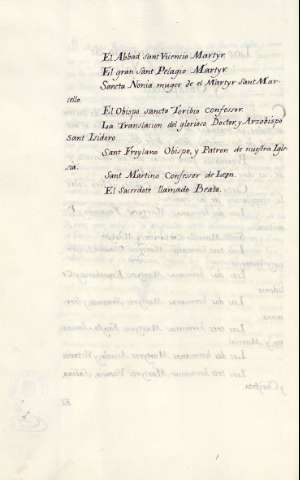 El Abbad sant Vicencio Martyr.
El gran Sant Pelagio Martyr.
Sancta Nonia muger de el Martyr Sant Mar-
cello.
El Obispo sancto Toribio confessor.
La Translacion del glorioso Doctor, y Arzobispo
Sant Isidoro.
Sant Froylano Obispo, y Patron de nuestra Igle-
sia.
Sant Martino Confessor de Leon.
El Sacerdote llamado Beato.